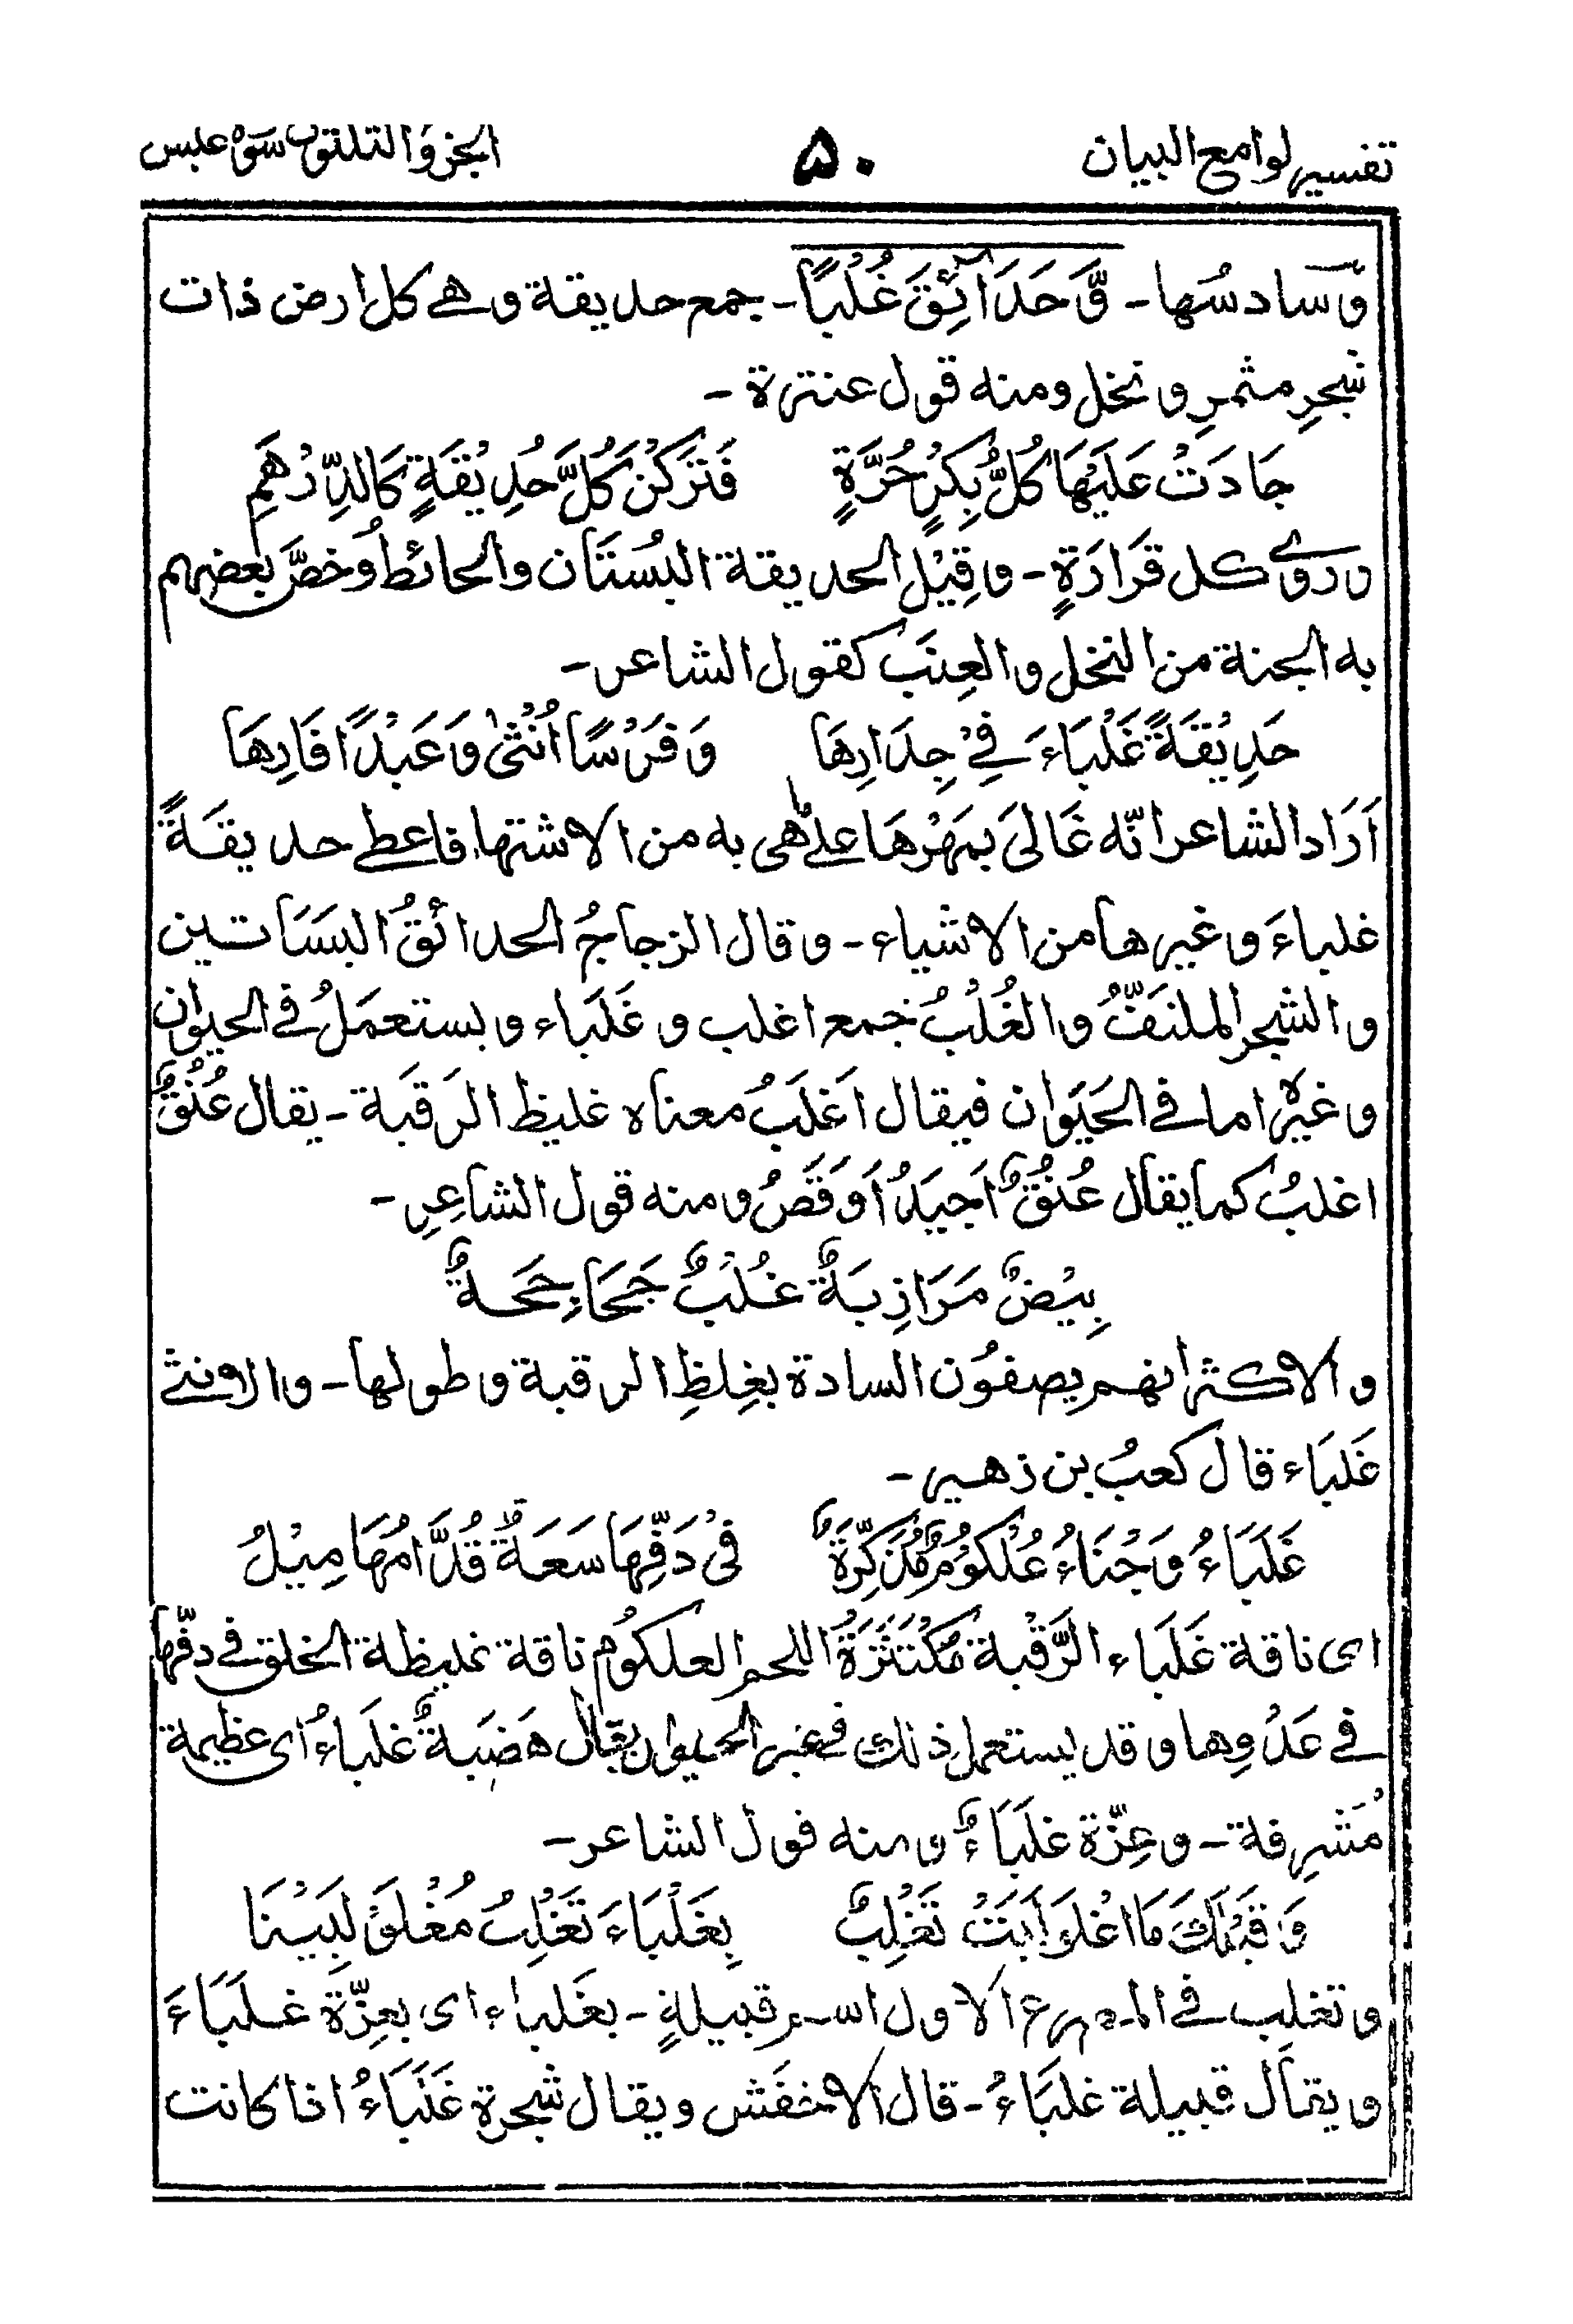 تفسير لوامع البيان ۵۰ الجزؤ الثلثون سورة عبس
وَّسادسُها - وَّحَدَآئِقَ غُلْبًا - جمع حديقة وهى كل ارض ذات
شجرِ مثمرِ ونخل ومنه قول عنترة -
جَادَتْ عَلَيْهَا كُلُّ بِكْرٍ حُرَّةٍ فَتَرَكْنَ كُلَّ حَدِيْقَةٍ كَالدِّرْهَمِ
وروى كل قَرَارَةٍ - وقِيْل الحديقة البُستَان والحائط وُخصَّ بعضهم
به الجنة من النخل والعِنَب كقول الشاعر -
حَدِيْقَةً غَلْبَاءَ فِيْ جِدَارِهَا وَفَرْسًا اُنْثٰى وَعَبْدًا فَارِهَا
اَرَاد الشاعر انّه غَالىَ بمَهْرْهَا على هى به من الاشتها فاعطى حديقةً
غلباءَ وغيرها من الاشياء - وقال الزجاجُ الحدائقُ البسَاتين
والشجر الملتَفّ والغُلْبُ جمع اغلب وغَلَباء ويستعمَلُ فى الحيوان
وغيره اما فى الحَيَوان فيقال اَغلَبُ معناه غليظ الرَقبَة - يقال عُنُقٌ
اغلبُ كما يقال عُنُقٌ اَجيَدُ اَوقَصُ ومنه قول الشاعِرِ -
بِيْضٌ مَرَازِبَةٌ غُلْبٌ جَحَاجِحَةٌ
والاكثر انهم يصفوُن السادة بغِلظِ الرقبة وطولها - والاونثى
غَلبَاء قال كعبُ بن زهير -
غَلَبَاءُ وَجْنَاءُ عُلْكُوْمٌ مُذَكِّرَةٌ فىْ دَفِّهَا سَعَةٌ قُدَّامُهَا مِيْلُ
اى ناقة غَلَباء الرَّقْبة مُكْتَنَزَةٌ اللحم العلكوُم ناقة غليظة الخلق فى دفّها
فى عَدْوِها وقد يستعمل ذلك فى غير الحيوان يقال هَضَبةٌ غلبَاءُ اى عظيمة
مُشرِفة - وعِزّة غلَبَاءٌ ومنه قول الشاعر -
وَقَبْلَكَ مَا اغْلَوَ ابَتَتْ تَغْلِبٌ بِغَلْبَاءَ تَغْلِبُ مُغْلَوْلِبَيْنَا
وتغلب فى المصرع الاول اسم قبيلةٍ - بغَلباء اى بعِزّة غلَبَاءَ
ويقال قبيلة غلبَاءُ - قال الاخفَش ويقال شجرة غَلَبَاءُ اذا كانت